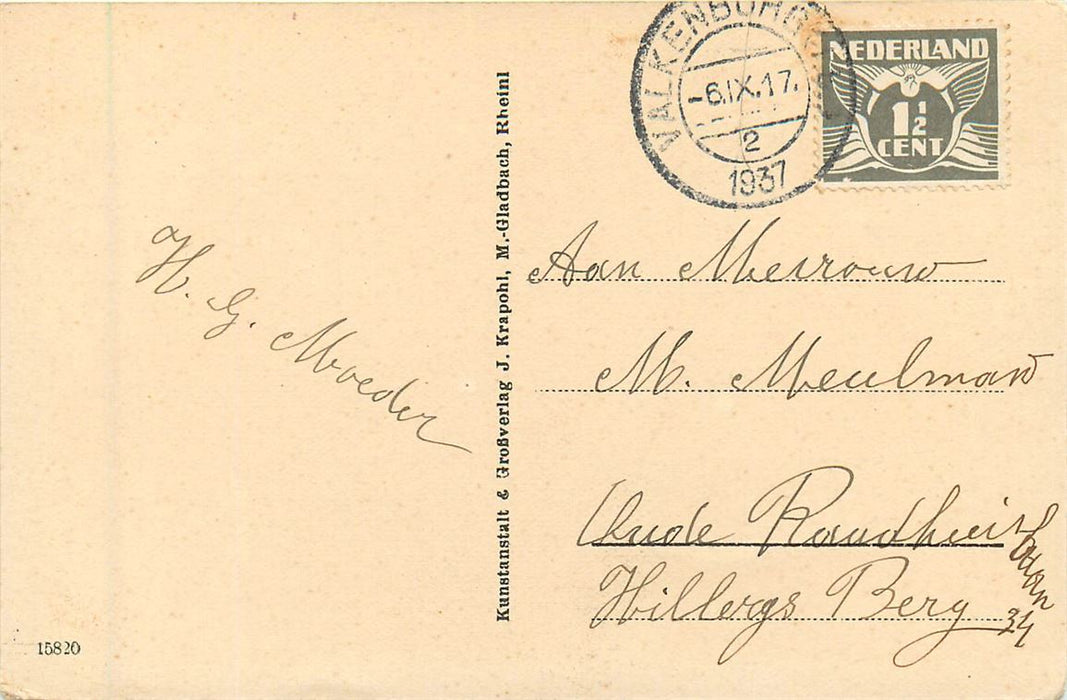 VALKENBURG
-6.IX.17.
2
1937
NEDERLAND
1½
CENT
H. G. Moeder
Kunstanstalt & Großverlag J. Krapohl, M.-Gladbach, Rheinl
Aan Mevrouw
M. Meulman
Oude Raadhuislaan
34
Hillergs Berg
15820